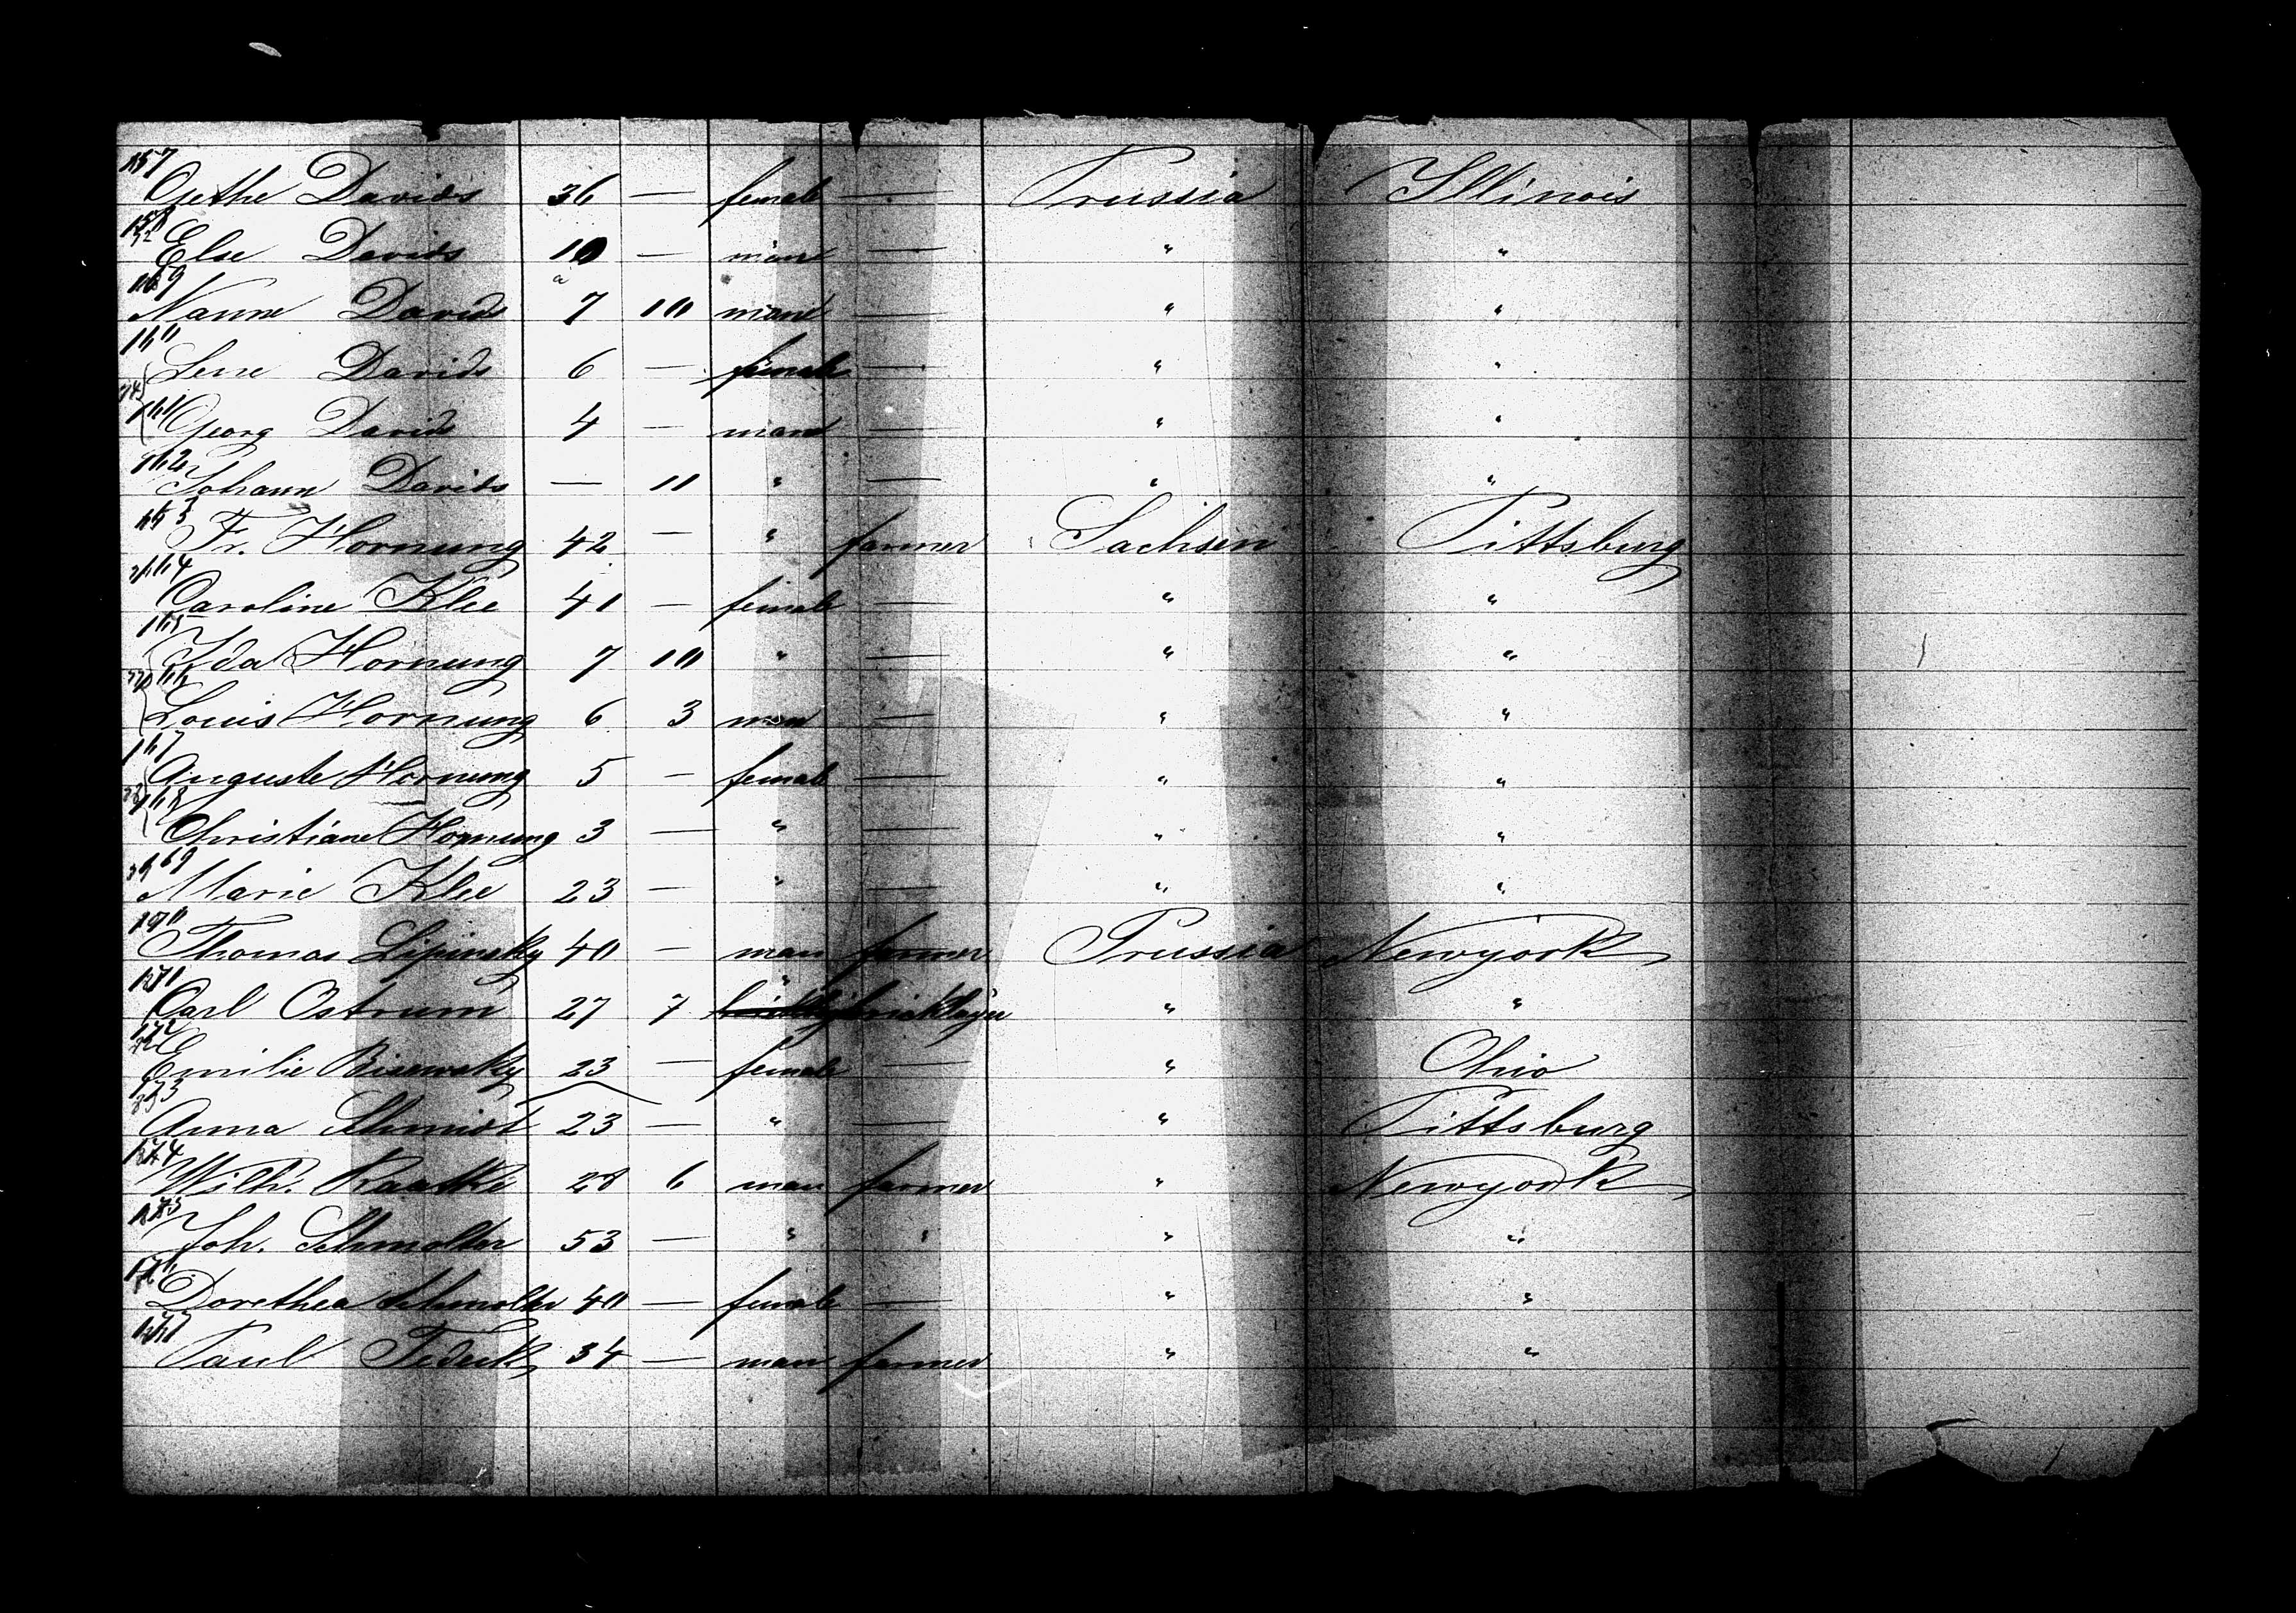 157 Gethe Davids 36 — female — Prussia Illinois
158 Else Davids 10 — man — " "
159 Nanne Davids 7 10 man — " "
160 Lene Davids 6 — female — " "
161 Georg Davids 4 — man — " "
162 Johann Davids — 11 " — " "
163 Fr. Hornung 42 — " farmer Sachsen Pittsburg
164 Caroline Klee 41 — female — " "
165 Ida Hornung 7 10 " — " "
166 Louis Hornung 6 3 man — " "
167 Auguste Hornung 5 — female — " "
168 Christiane Hornung 3 — " — " "
169 Marie Klee 23 — " — " "
170 Thomas Lipinsky 40 — man farmer Prussia Newyork
171 Carl Ostrum 27 7 " bricklayer " "
172 Emilie Bisewsky 23 — female — " Ohio
173 Anna Schmidt 23 — " — " Pittsburg
174 Wilh. Raatke 28 6 man farmer " Newyork
175 Joh. Schmolter 53 — " " " "
176 Dorethea Schmolter 40 — female — " "
177 Paul 34 — man farmer " "